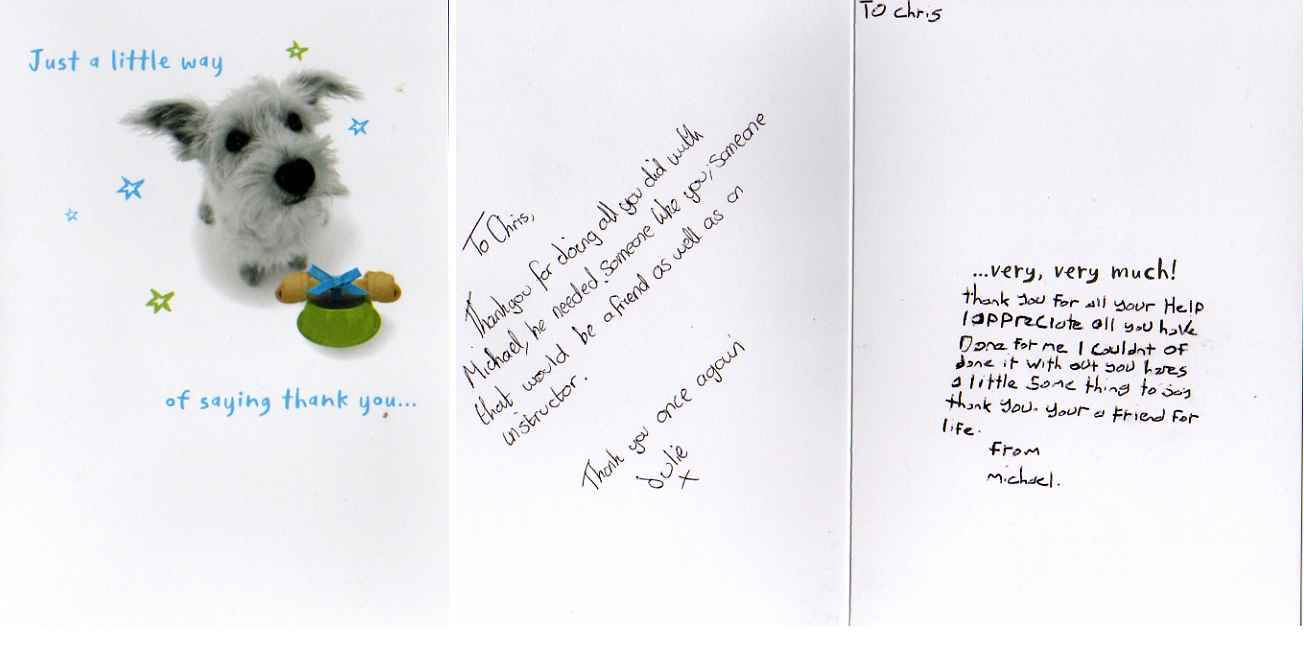 Just a little way
of saying thank you...
To Chris,
Thankyou for doing all you did with
Michael, he needed someone like you, someone
that would be a friend as well as an
instructor.
Thank you once again
Julie
x
TO chris
...very, very much!
thank you for all your Help
I appreciate all you have
Done for me I couldnt of
done it with out you heres
a little some thing to say
thank you. your a friend for
life.
from
michael.